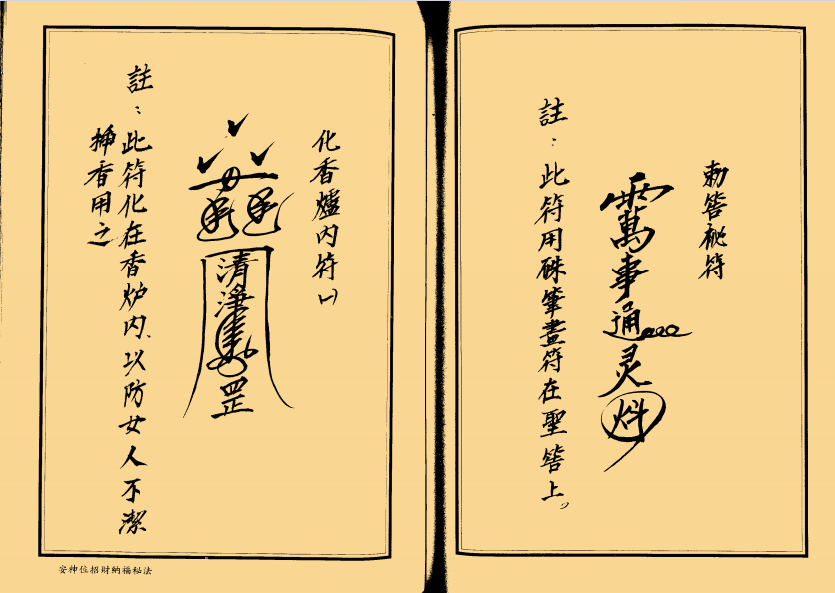 勅筶秘符
雷萬事通灵
註：此符用硃筆畫符在聖筶上。
化香爐內符(一)
清淨
罡
註：此符化在香炉內、以防女人不潔
挿香用之
安神位招財納福秘法